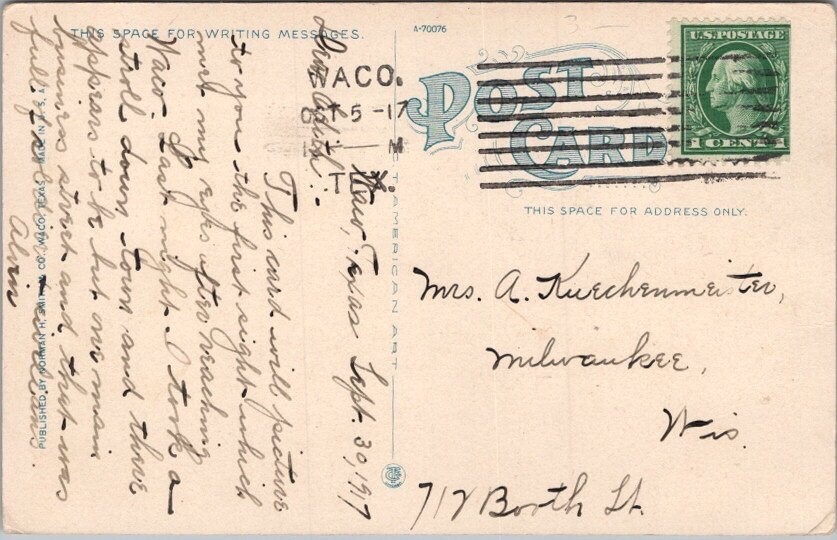 THIS SPACE FOR WRITING MESSAGES.
A-70076
POST
CARD
THIS SPACE FOR ADDRESS ONLY.
U.S. POSTAGE
1 CENT 1
WACO.
5-17
M
Waco, Texas Sept. 30, 1917
Dear
This card will picture
to you the first sight which
met my eyes after reaching
Waco. Last night I took a
stroll down town and there
appears to be but one main
business street and that was
full of
Alvin
Mrs. A. Kuechenmeister,
Milwaukee,
Wis.
712 Booth St.
C.T. AMERICAN ART
PUBLISHED BY NORMAN H. SMITH & CO. WACO, TEXAS. MADE IN U.S.A.